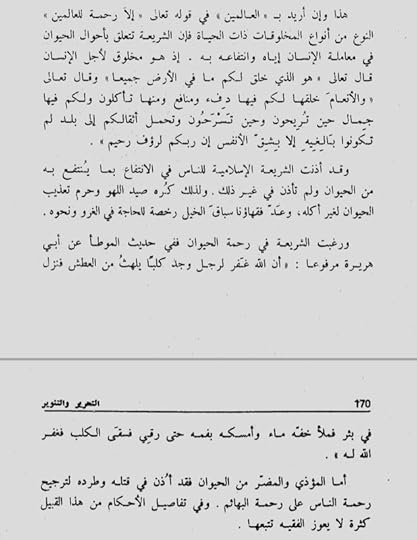 هذا وإن أريد بـ « العـالمين » في قوله تعالى « إلا رحمة للعالمين »
النوع من أنواع المخلوقـات ذات الحيـاة فإن الشريعـة تتعلق بأحوال الحيوان
في معاملـة الإنسان إياه وانتفاعـه بـه . إذ هـو مخلوق لأجل الإنسان
قال تعالى « هو الذي خلق لـكم مـا في الأرض جميعـا » وقـال تعـالى
« والأنعـامَ خلقهـا لـكم فيهـا دفء ومنافع ومنهـا تـأكلون ولـكم فيهـا
جمـال حين تُريحون وحين تَسْرَحُون وتحمـل أثقالـكم إلى بلـد لم
تـكونوا بَـالـغِيـهِ إلا بِشِقّ الأنفس إن ربـكم لرؤف رحيم » .
وقـد أذنت الشريعـة الإسلاميـة للناس في الانتفاع بمـا يُنتفـع بـه
من الحيوان ولم تأذن في غيـر ذلك . ولذلك كُره صيد اللهو وحرم تعذيب
الحيوان لغير أكله ، وعـدّ فقهاؤنا سباق الخيل رخصة للحاجة في الغزو ونحوه .
ورغبت الشريعـة في رحمـة الحيوان ففي حديث الموطـأ عن أبـي
هريـرة مرفوعـا : « أن الله غـفر لرجـل وجد كلبـًا يلهثُ من العطش فنزل
170 التحرير والتنوير
في بئر فمـلأ خفّـه مـاء وأمسكـه بفمـه حتى رقِـي فسقَـى الـكلب فغفـر
الله لـه » .
أمـا المؤذي والمضـرّ من الحيوان فقد أُذن في قتلـه وطرده لترجيح
رحمـة الناس على رحمـة البهائم . وفي تفاصيـل الأحـكام من هـذا القبيل
كثرة لا يعوز الفقيـه تتبعهـا .